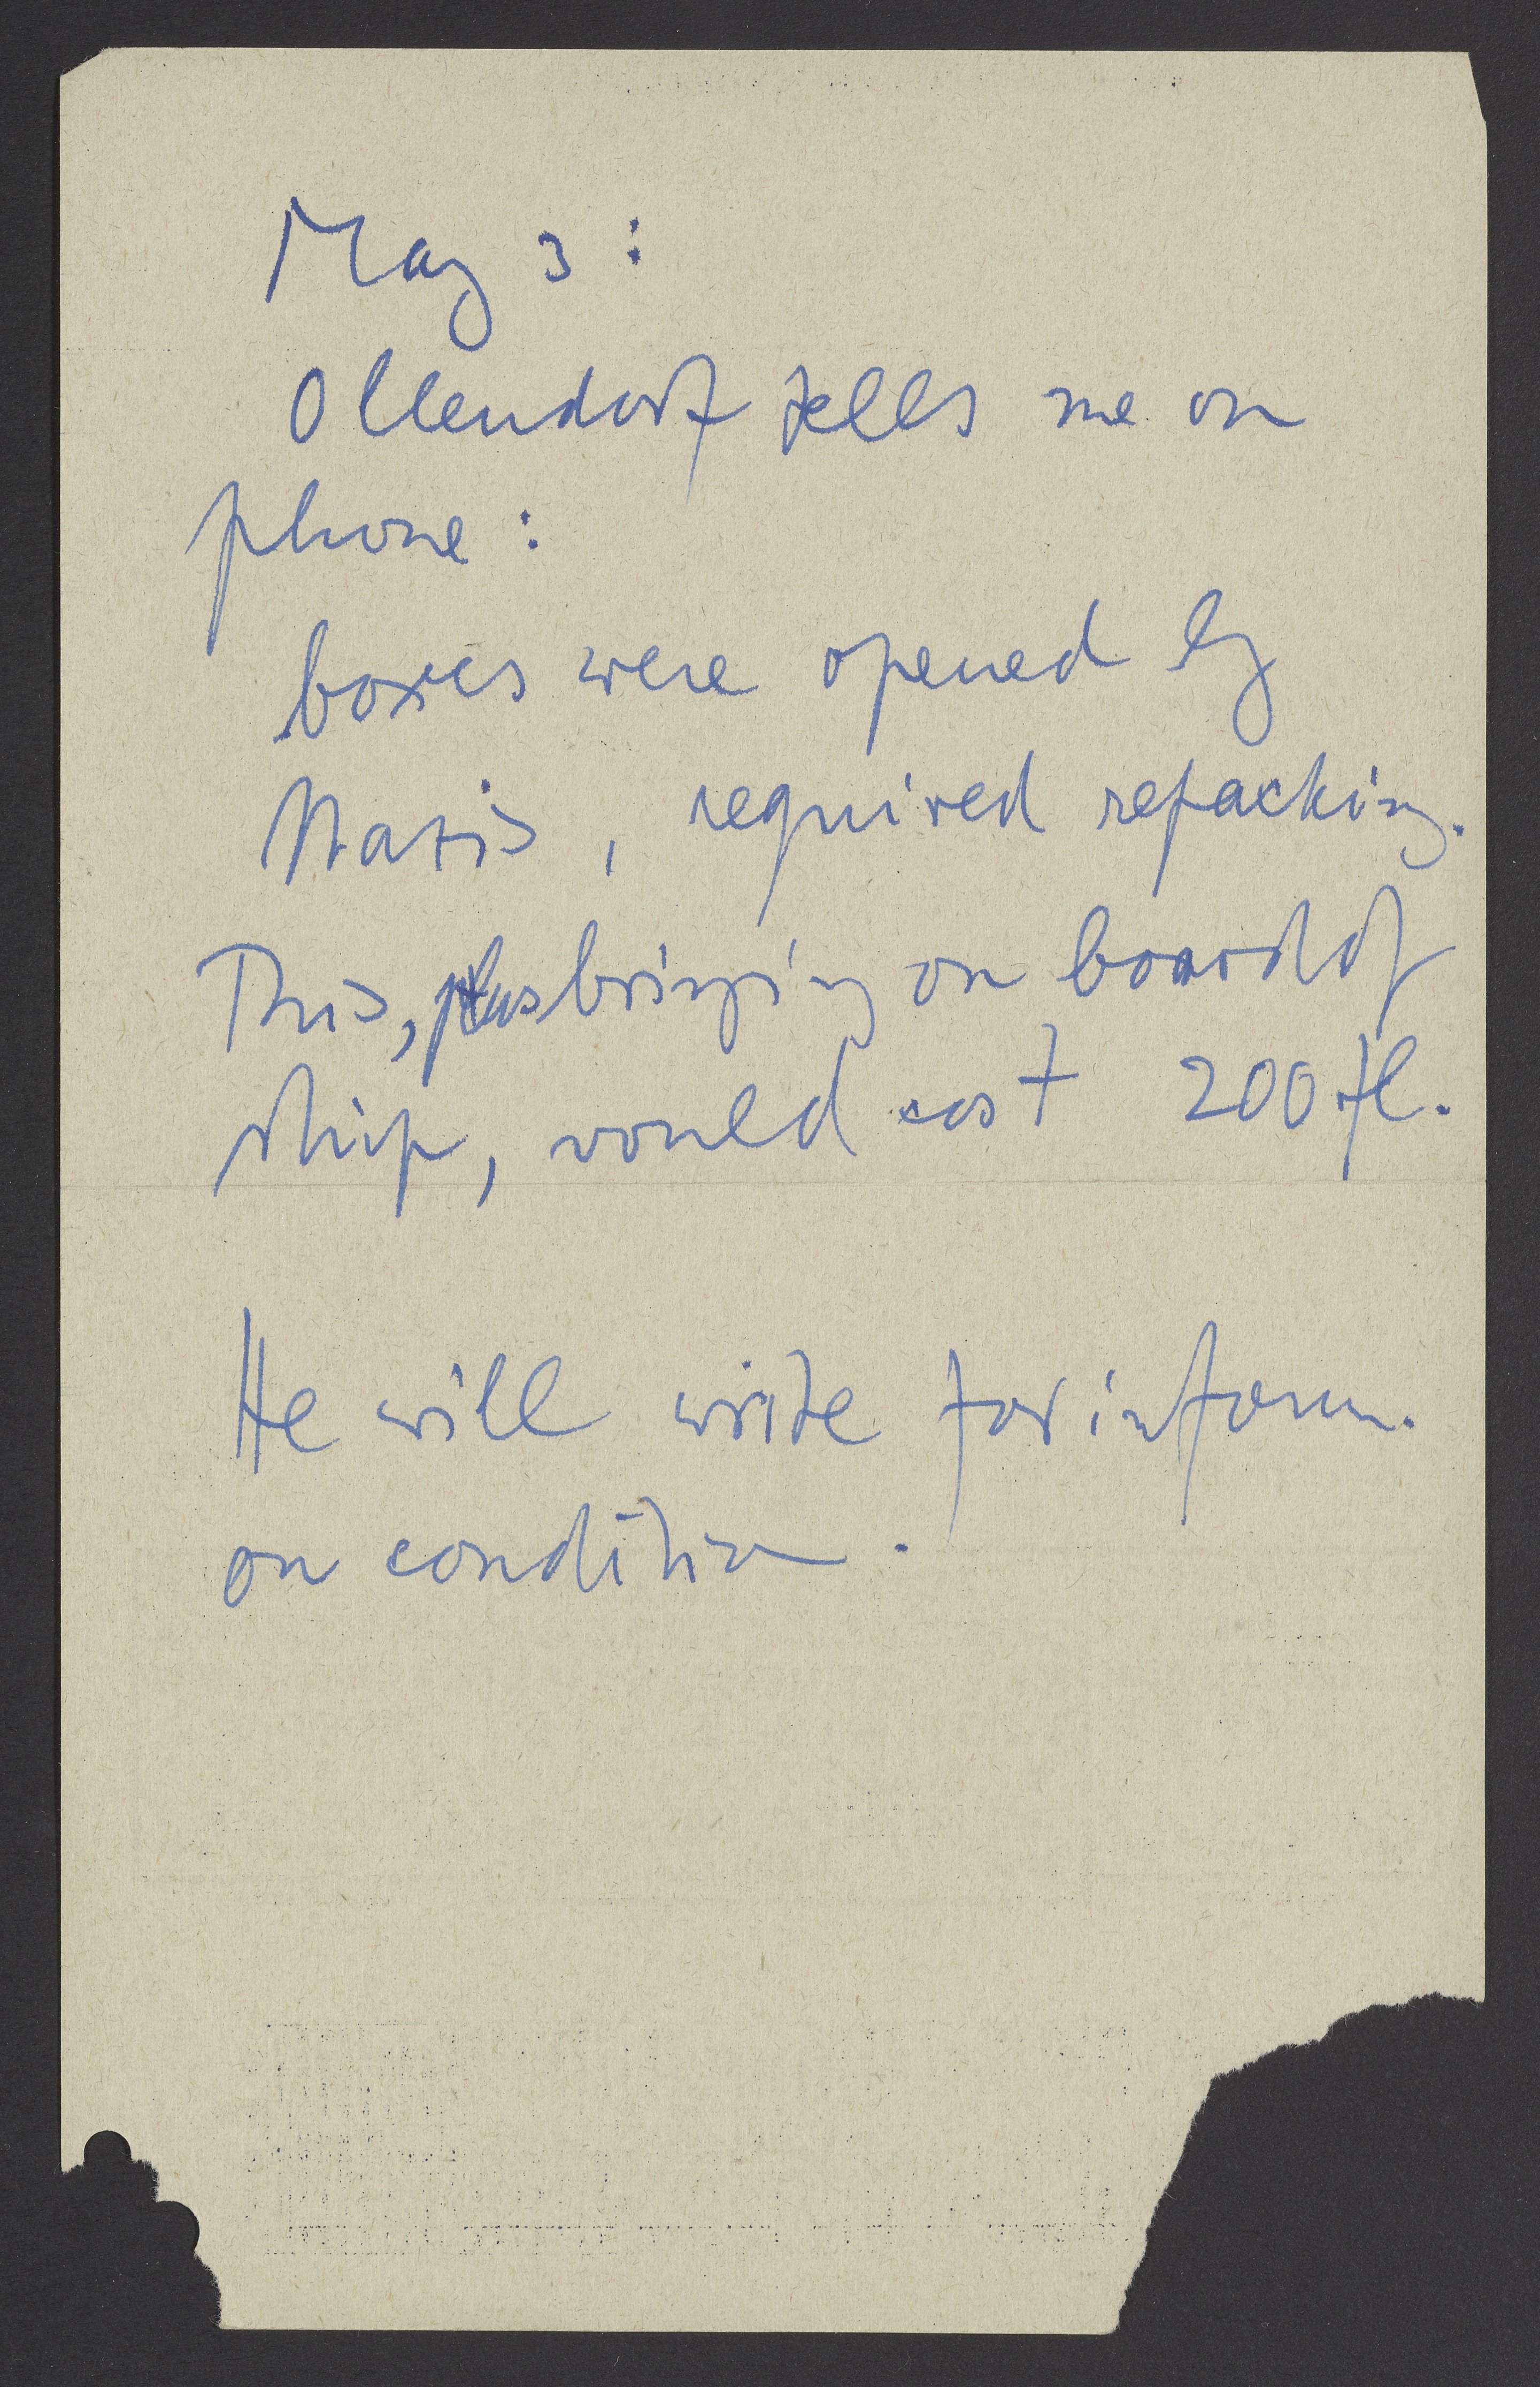 May 3:
Ollendorf tells me on
phone:
boxes were opened by
Nazis, required repacking.
This, plus bringing on board of
ship, would cost 200 fl.
He will write for inform.
on condition.